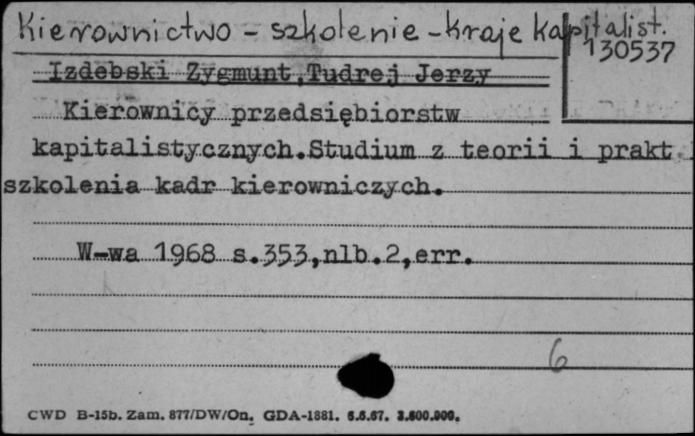 Kierownictwo - szkolenie - kraje kapitalist.
130537
Izdebski Zygmunt,Tudrej Jerzy
Kierownicy przedsiębiorstw
kapitalistycznych.Studium z teorii i prakt.
szkolenia kadr kierowniczych.
W-wa 1968 s.353,nlb.2,err.
6
CWD B-15b. Zam. 877/DW/On. GDA-1881. 6.6.67. 3.600.000.